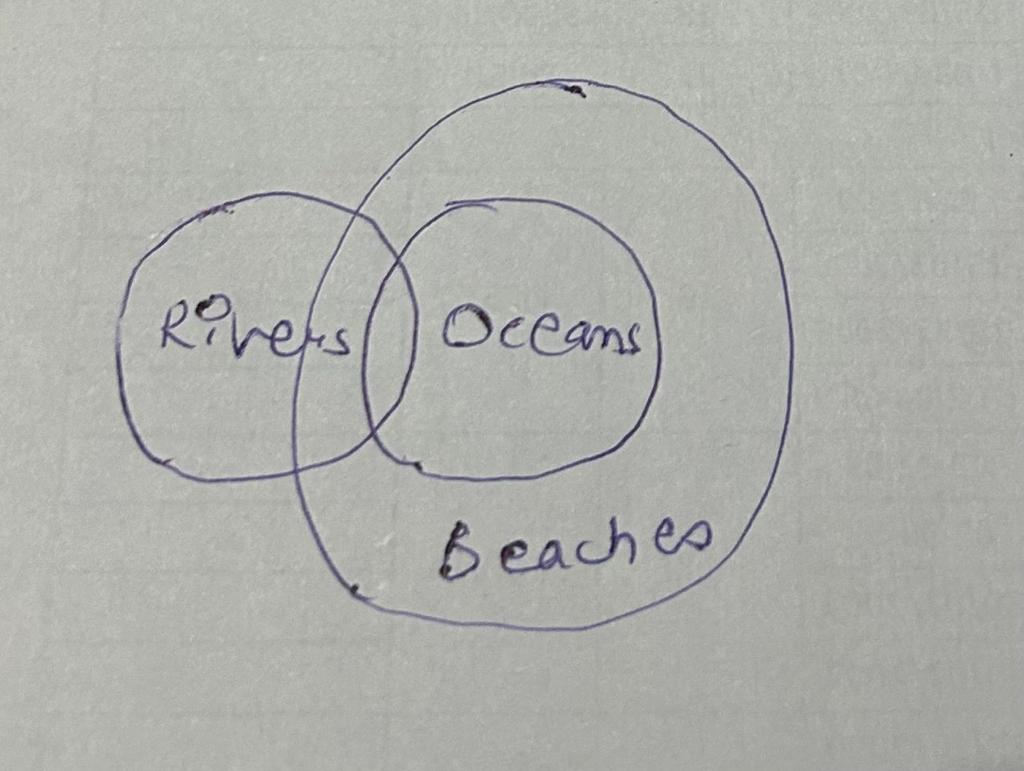 Rivers Oceans
Beaches